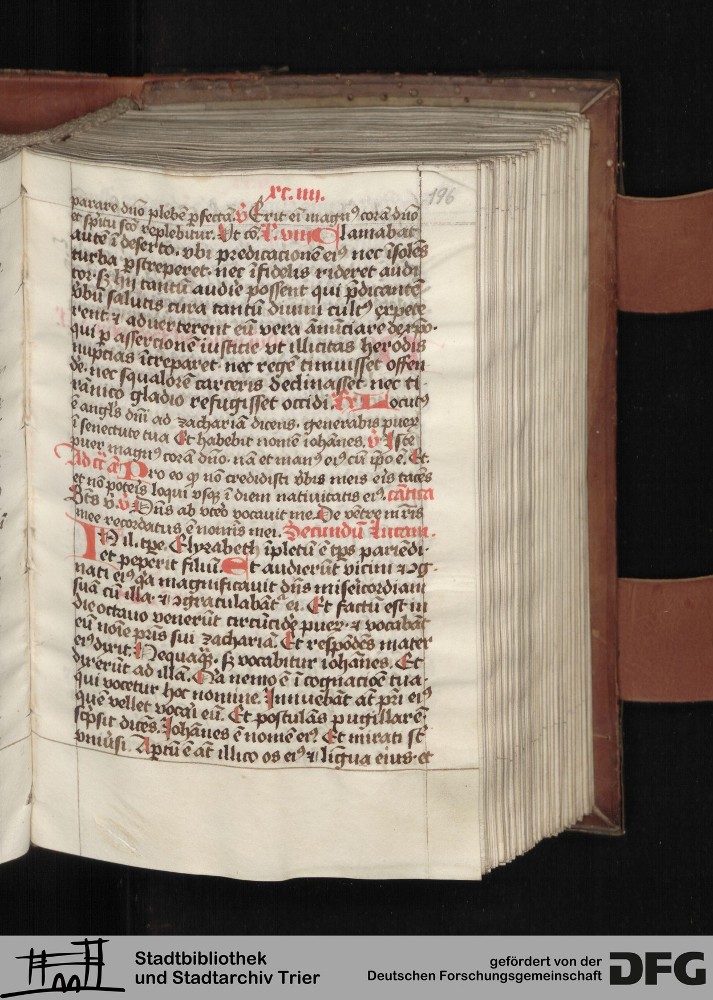 xc. iiij.
196
parare dño plebē ꝑfectā. v̄ Erit eī magnꝰ corā dño
et spũ scõ replebitur. Vt cõ. L. viii Clamabat
autē ī deserto. vbi predicationē eiꝰ nec īsolēs
turba ꝑstreperet. nec īfidelis rideret audi
tor. sʒ hii tantū audire possent qui p̄dicantē
vbū salutis cura tantū diuini cultꝰ expete
rent ⁊ aduerterent eū vera ānūciare
qui ꝑ assertionē iusticie vt illicitas herodis
nuptias īcreparet. nec regē timuisset offen
de. nec squalorē carceris declinasset nec ti
rānico gladio refugisset occidi. Locutꝰ
ē angl̄s dñi ad zachariā dicens. generabis puerꝝ
ī senectute tua Et habebit nomē iohānes. v̄ Iste
puer magnꝰ corā dño. nā et manꝰ eiꝰ cū ipō ē. Et.
Pro eo ꝙ nō credidisti vbis meis eis tacēs
et nō poteris loqui vsqꝫ ī diem natiuitatis eiꝰ. cātica
Dñs ab vtero vocauit me. De vētre mr̄is
mee recordatus ē nomīs mei. Secundū Lucam.
IN il. tpe. Elyzabeth īpletū ē tp̄s pariēdi.
et peperit filiū. Et audierūt vicini ⁊ ꝯg
nati eiꝰ qa magnificauit dñs misericordiam
suā cū illa. ⁊ ꝯgratulabāt ei. Et factū est in
die octauo venerūt circūcide pueꝝ. ⁊ vocabāt
eū noīe pr̄is sui zachariā. Et respōdēs mater
eiꝰ dixit. Nequaqꝫ. sʒ vocabitur iohānes. Et
dixerūt ad illā. Qa nemo ē ī cognacioē tua.
qui vocetur hoc nomine. Innuebāt aūt pr̄i eiꝰ
quē vellet vocari eū. Et postulās pugillarē
scpsit dicēs. Iohānes ē nomē eiꝰ. Et mirati st̄
vniūsi. Aptū ē aūt illico os eiꝰ ⁊ lingua eius. et
Stadtbibliothek
und Stadtarchiv Trier
gefördert von der
Deutschen Forschungsgemeinschaft
DFG